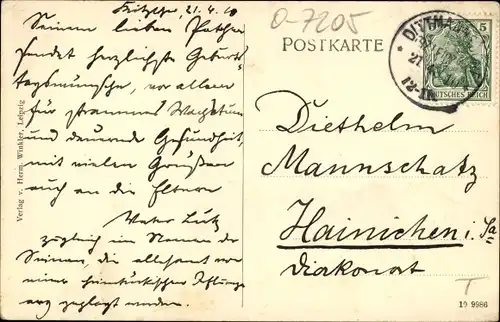 21. 4. 10
Seinem lieben Patchen
sendet herzlichste Geburts-
tagswünsche, vor allem
für strammes Wachstum
und dauernde Gesundheit,
mit vielen Grüßen
auch an die Eltern
Vater Lutz
zugleich im Namen der
Seinen, die allesamt von
einer
geplagt werden.
Verlag v. Herm. Winkler, Leipzig
O-7205
POSTKARTE
DITTMANN
12-1N
5
DEUTSCHES REICH
Diethelm
Mannschatz
Hainichen i. Sa
Diakonat
T
10 9986